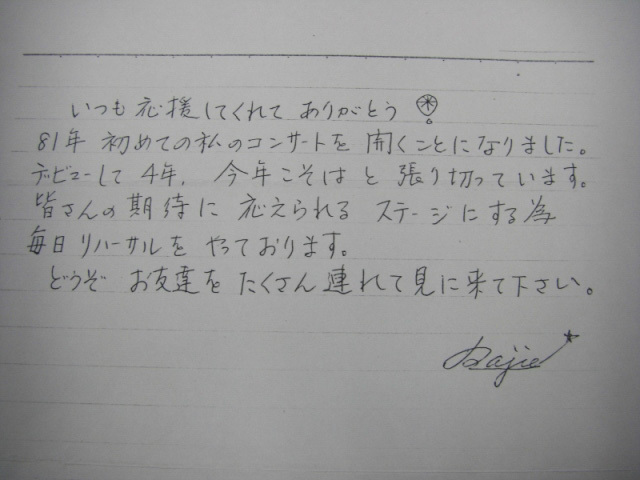 いつも応援してくれて ありがとう
81年 初めての私のコンサートを 開くことになりました。
デビューして 4年, 今年こそは と 張り切っています。
皆さんの期待に 応えられる ステージにする為
毎日リハーサルを やっております。
どうぞ お友達を たくさん 連れて見に来て下さい。